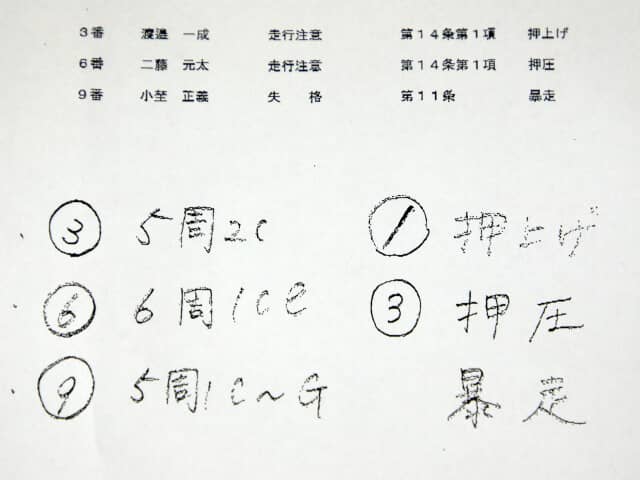 3番 渡邉 一成 走行注意 第14条第1項 押上げ
6番 二藤 元太 走行注意 第14条第1項 押圧
9番 小埜 正義 失格 第11条 暴走
③ 5周2C ① 押上げ
⑥ 6周1Ce ③ 押圧
⑨ 5周1C~G 暴走